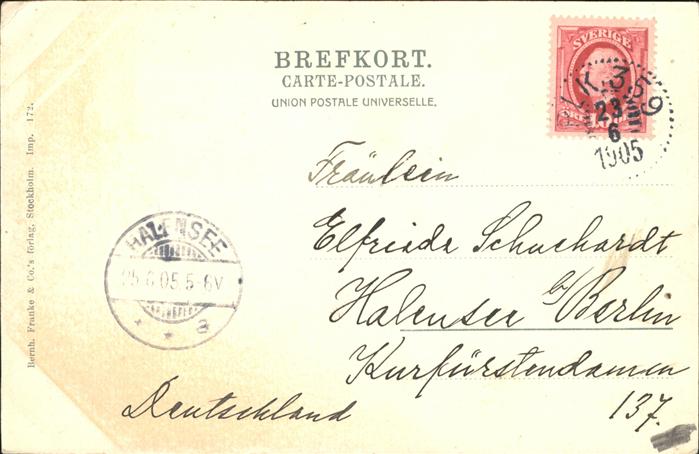 BREFKORT.
CARTE-POSTALE.
UNION POSTALE UNIVERSELLE.
SVERIGE
K. 359
23
6
1905
Fräulein
Elfriede Schuchardt
Halensee b/ Berlin
Kurfürstendamm
137.
Deutschland
HALENSEE
25.6.05.5-6V
* * a
Bernh. Franke & Co.'s förlag, Stockholm. Imp. 172.